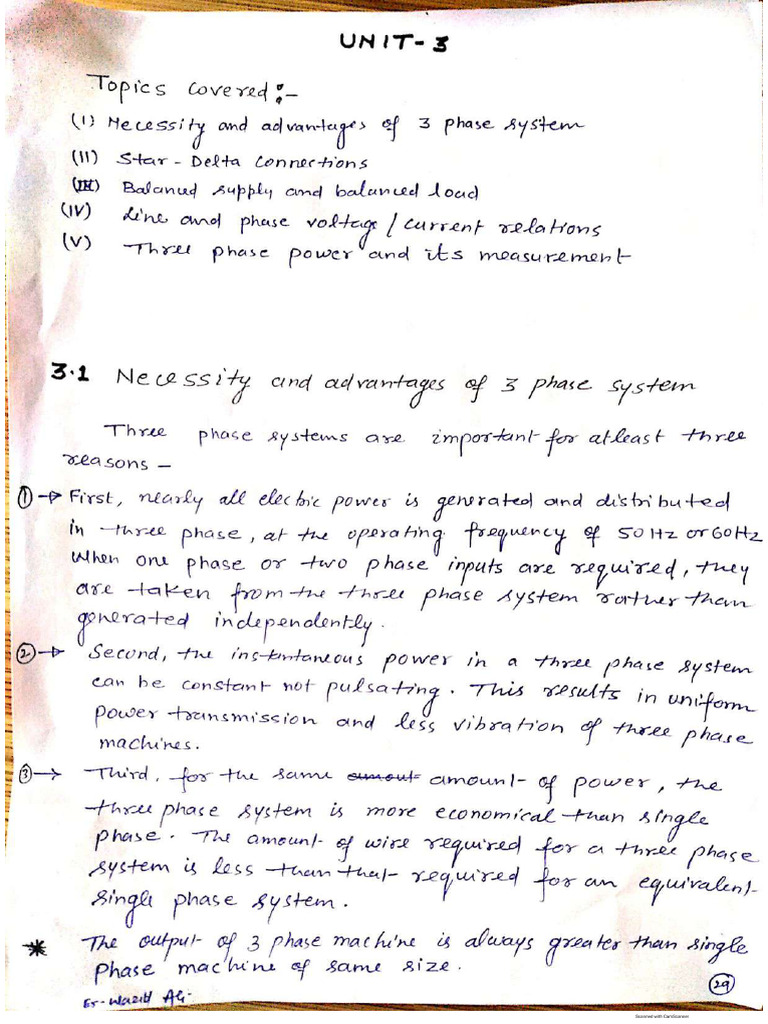 UNIT-3
Topics covered:-
(I) Necessity and advantages of 3 phase system
(II) Star-Delta Connections
(III) Balanced supply and balanced load
(IV) Line and phase voltage / current relations
(V) Three phase power and its measurement
3.1 Necessity and advantages of 3 phase system
Three phase systems are important for atleast three
reasons -
① → First, nearly all electric power is generated and distributed
in three phase, at the operating frequency of 50Hz or 60Hz
When one phase or two phase inputs are required, they
are taken from the three phase system rather than
generated independently.
② → Second, the instantaneous power in a three phase system
can be constant not pulsating. This results in uniform
power transmission and less vibration of three phase
machines.
③ → Third, for the same amount of power, the
three phase system is more economical than single
phase. The amount of wire required for a three phase
system is less than that required for an equivalent
single phase system.
* The output of 3 phase machine is always greater than single
phase machine of same size.
29
Er-Wazid Ali
Scanned with CamScanner